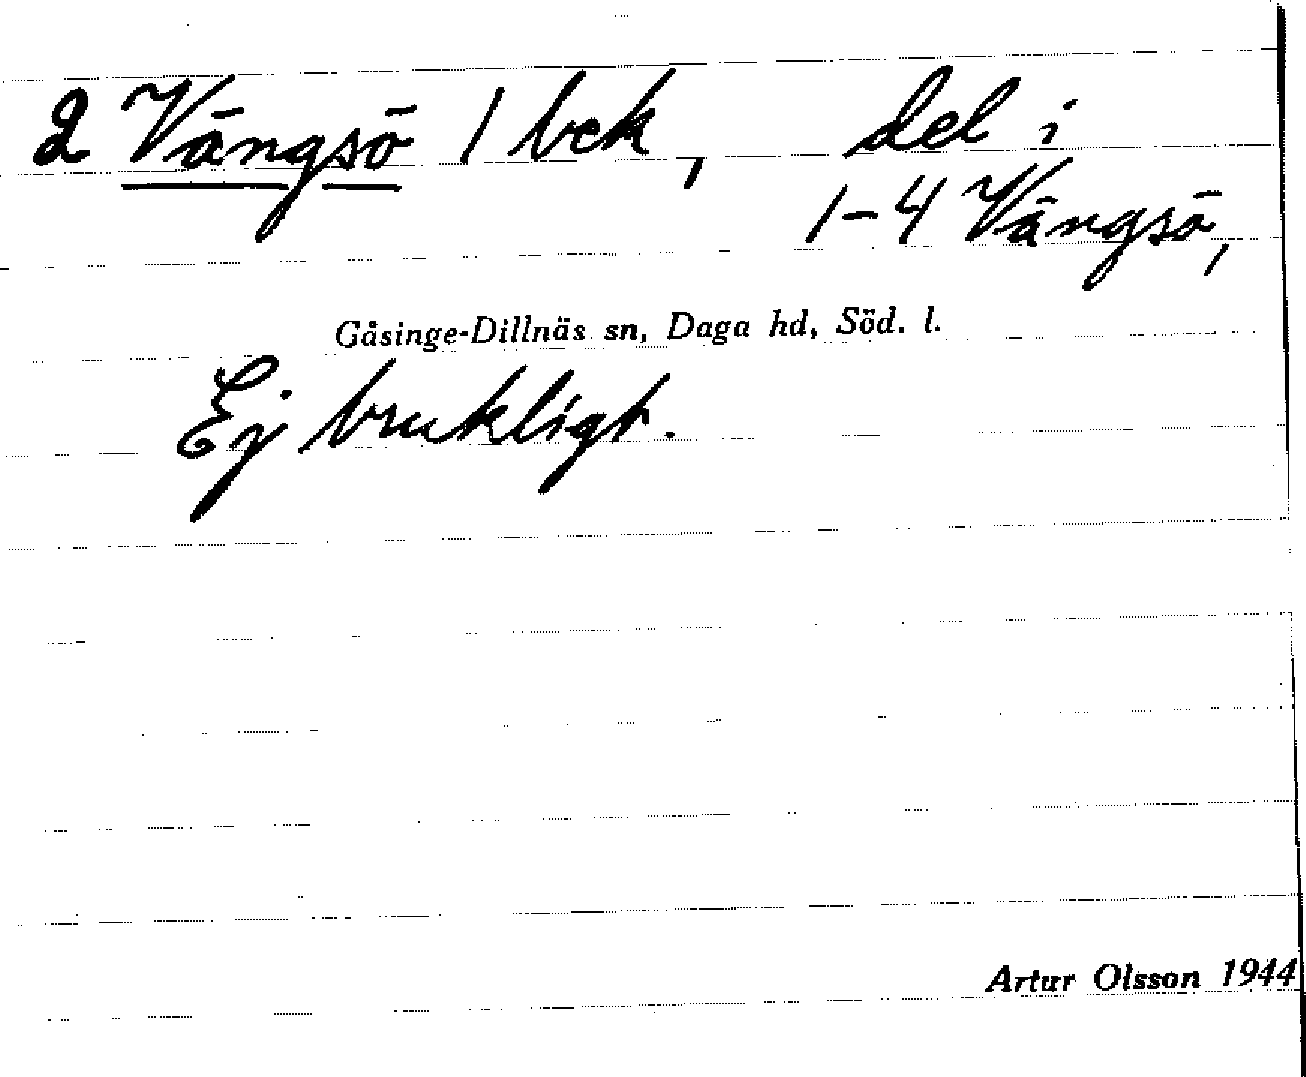 2 Vängsö 1 bck, del i
1-4 Vängsö,
Gåsinge-Dillnäs sn, Daga hd, Söd. l.
Ej brukligt.
Artur Olsson 1944